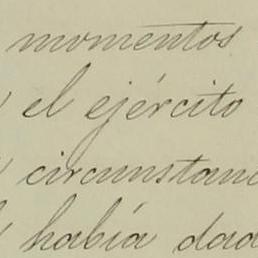 momentos
el ejército
circunstanc
había dad